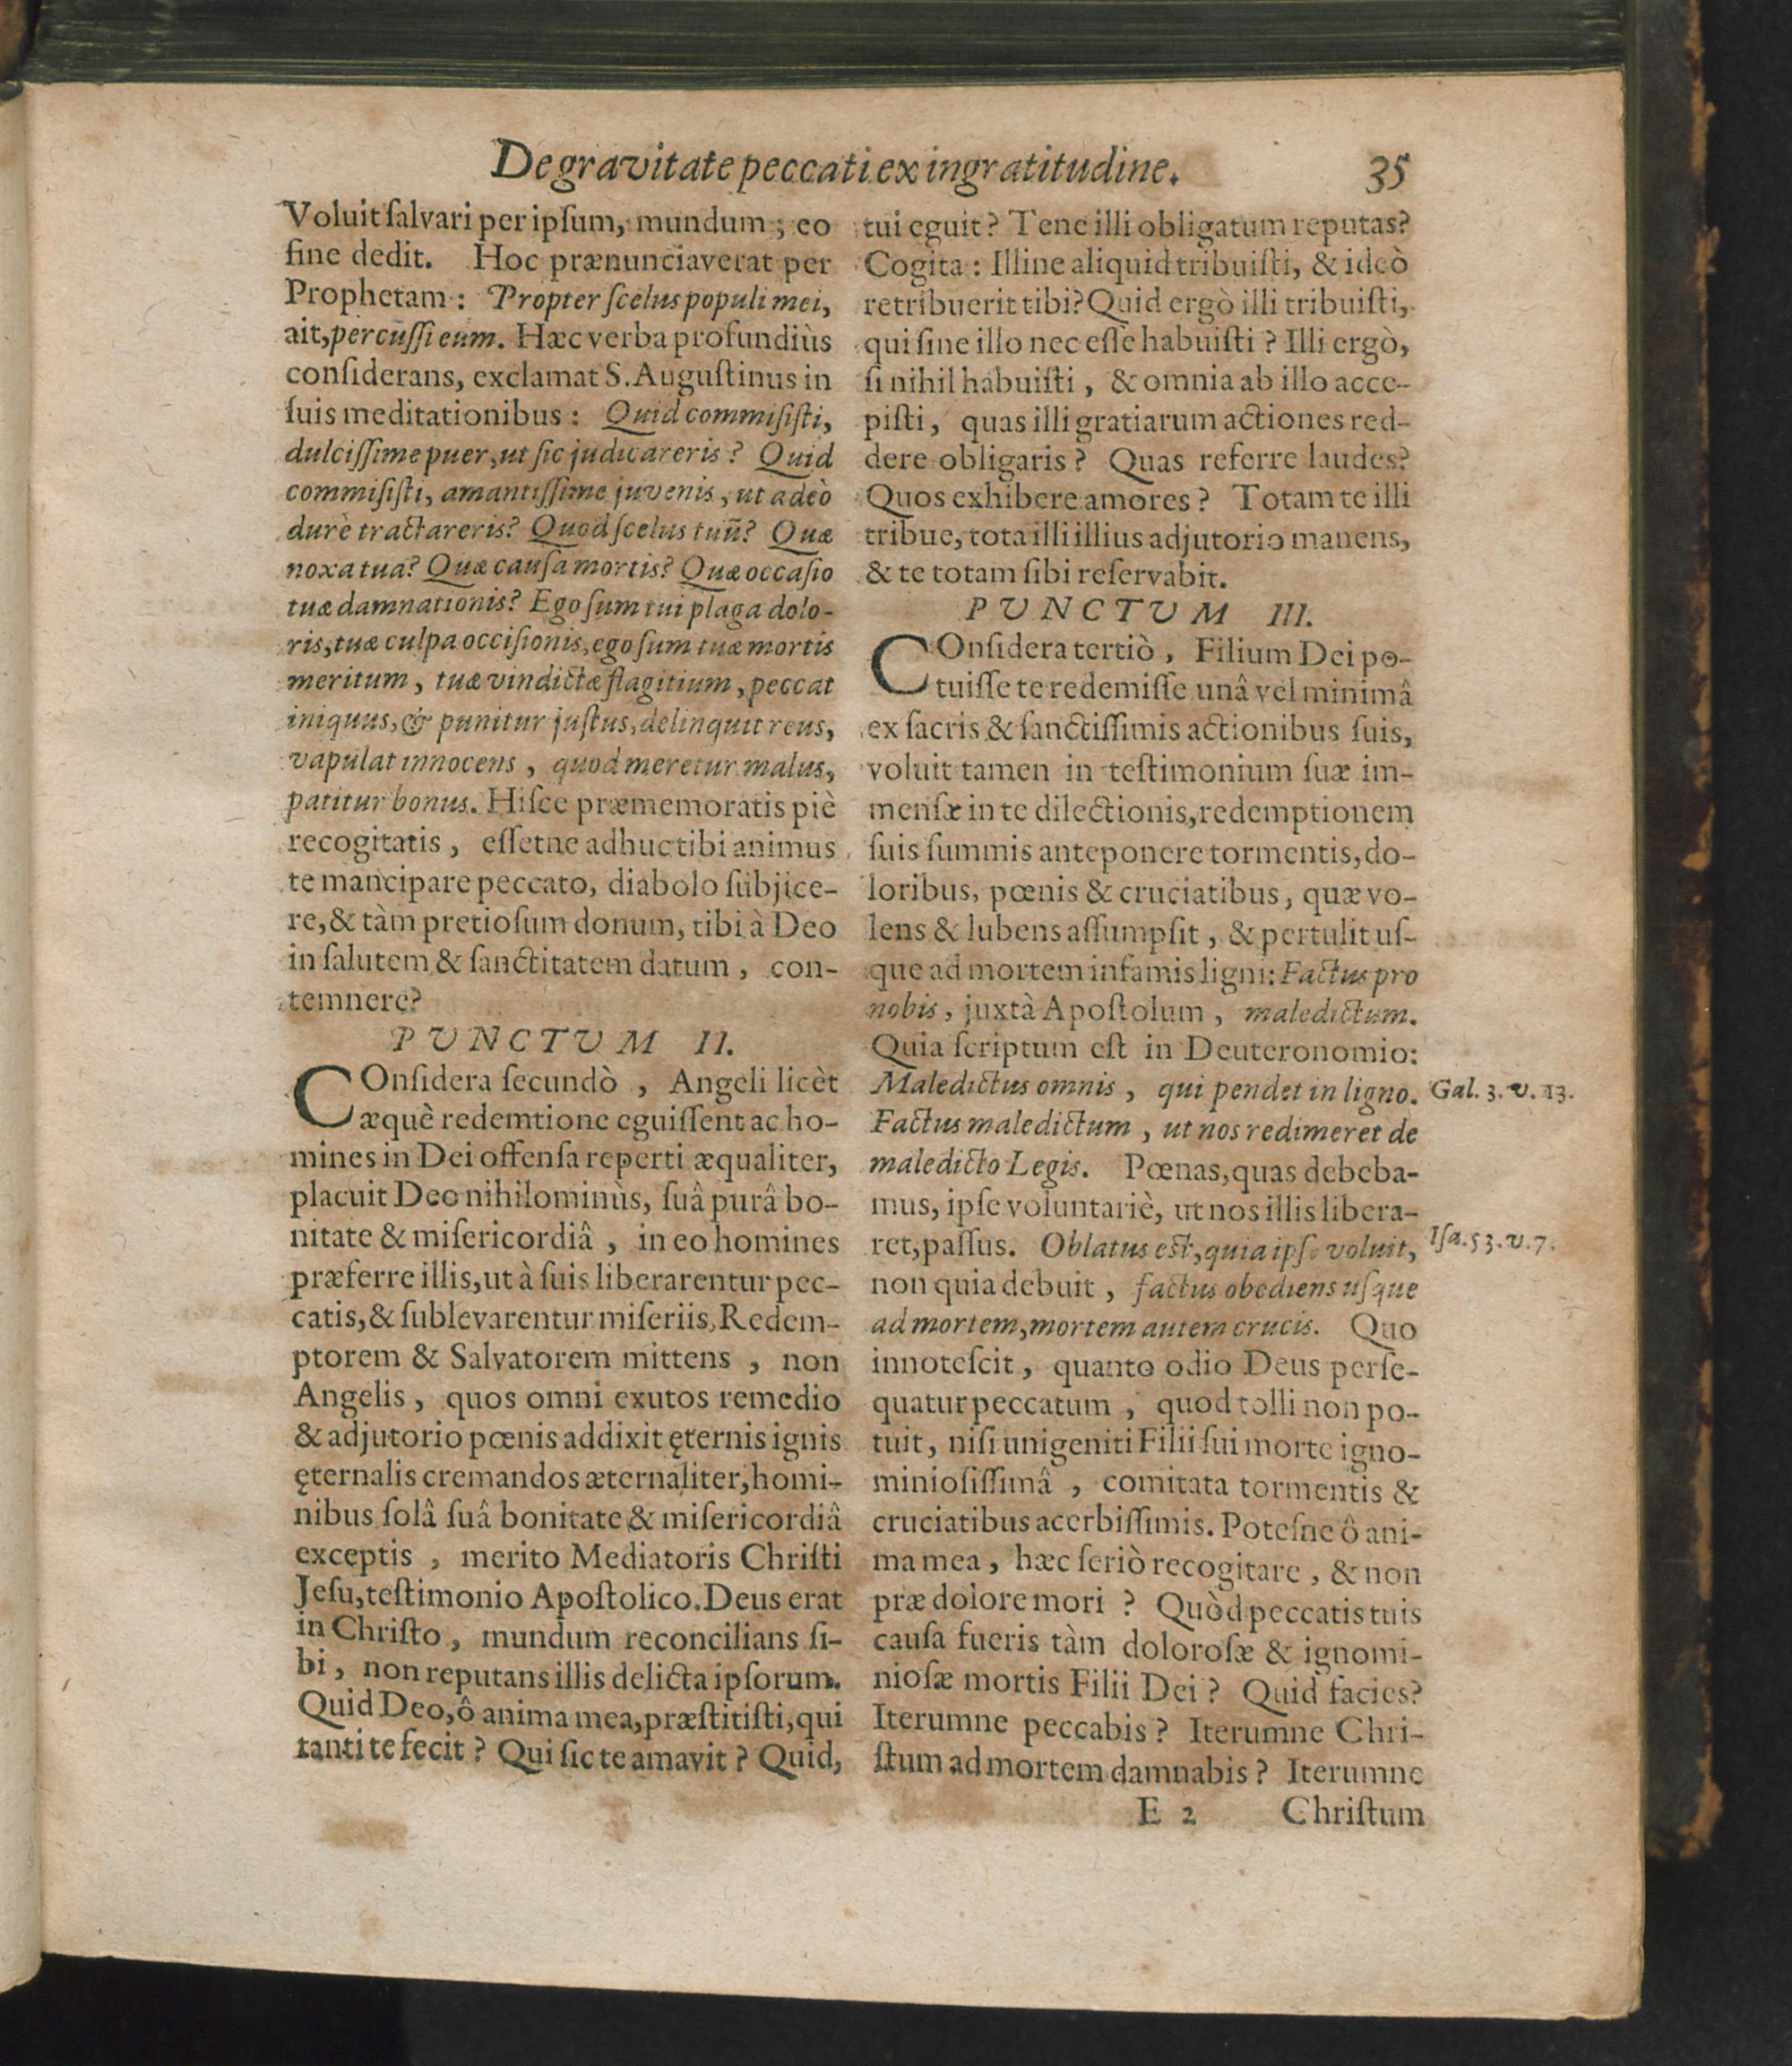 De gravitate peccati ex ingratitudine. 35
Voluit ſalvari per ipſum, mundum; eo
fine dedit. Hoc prænunciaverat per
Prophetam: Propter ſcelus populi mei,
ait, percuſſi eum. Hæc verba profundiùs
conſiderans, exclamat S. Auguſtinus in
ſuis meditationibus: Quid commiſiſti,
dulciſſime puer, ut ſic judicareris? Quid
commiſiſti, amantiſſime juvenis, ut adeò
durè tractareris? Quod ſcelus tuũ? Quæ
noxa tua? Quæ cauſa mortis? Quæ occaſio
tuæ damnationis? Ego ſum tui plaga dolo-
ris, tuæ culpa occiſionis, ego ſum tuæ mortis
meritum, tuæ vindictæ flagitium, peccat
iniquus, & punitur juſtus, delinquit reus,
vapulat innocens, quod meretur malus,
patitur bonus. Hiſce præmemoratis piè
recogitatis, eſſetne adhuc tibi animus
te mancipare peccato, diabolo ſubjice-
re, & tàm pretioſum donum, tibi à Deo
in ſalutem & ſanctitatem datum, con-
temnere?
PUNCTUM II.
COnſidera ſecundò, Angeli licèt
æquè redemtione eguiſſent ac ho-
mines in Dei offenſa reperti æqualiter,
placuit Deo nihilominùs, ſuâ purâ bo-
nitate & miſericordiâ, in eo homines
præferre illis, ut à ſuis liberarentur pec-
catis, & ſublevarentur miſeriis, Redem-
ptorem & Salvatorem mittens, non
Angelis, quos omni exutos remedio
& adjutorio pœnis addixit ęternis ignis
ęternalis cremandos æternaliter, homi-
nibus ſolâ ſuâ bonitate & miſericordiâ
exceptis, merito Mediatoris Chriſti
Jeſu, teſtimonio Apoſtolico. Deus erat
in Chriſto, mundum reconcilians ſi-
bi, non reputans illis delicta ipſorum.
Quid Deo, ô anima mea, præſtitiſti, qui
tanti te fecit? Qui ſic te amavit? Quid,
tui eguit? Tene illi obligatum reputas?
Cogita: Illine aliquid tribuiſti, & ideò
retribuerit tibi? Quid ergò illi tribuiſti,
qui ſine illo nec eſſe habuiſti? Illi ergò,
ſi nihil habuiſti, & omnia ab illo acce-
piſti, quas illi gratiarum actiones red-
dere obligaris? Quas referre laudes?
Quos exhibere amores? Totam te illi
tribue, tota illi illius adjutorio manens,
& te totam ſibi reſervabit.
PUNCTUM III.
COnſidera tertiò, Filium Dei po-
tuiſſe te redemiſſe unâ vel minimâ
ex ſacris & ſanctiſſimis actionibus ſuis,
voluit tamen in teſtimonium ſuæ im-
menſæ in te dilectionis, redemptionem
ſuis ſummis anteponere tormentis, do-
loribus, pœnis & cruciatibus, quæ vo-
lens & lubens aſſumpſit, & pertulit uſ-
que ad mortem infamis ligni: Factus pro
nobis, juxtà Apoſtolum, maledictum.
Quia ſcriptum eſt in Deuteronomio:
Maledictus omnis, qui pendet in ligno. Gal. 3. v. 13.
Factus maledictum, ut nos redimeret de
maledicto Legis. Pœnas, quas debeba-
mus, ipſe voluntariè, ut nos illis libera-
ret, paſſus. Oblatus eſt, quia ipſe voluit, Iſa. 53. v. 7.
non quia debuit, factus obediens uſque
ad mortem, mortem autem crucis. Quo
innoteſcit, quanto odio Deus perſe-
quatur peccatum, quod tolli non po-
tuit, niſi unigeniti Filii ſui morte igno-
minioſiſſimâ, comitata tormentis &
cruciatibus acerbiſſimis. Poteſne ô ani-
ma mea, hæc ſeriò recogitare, & non
præ dolore mori? Quòd peccatis tuis
cauſa fueris tàm doloroſæ & ignomi-
nioſæ mortis Filii Dei? Quid facies?
Iterumne peccabis? Iterumne Chri-
ſtum ad mortem damnabis? Iterumne
E 2 Chriſtum